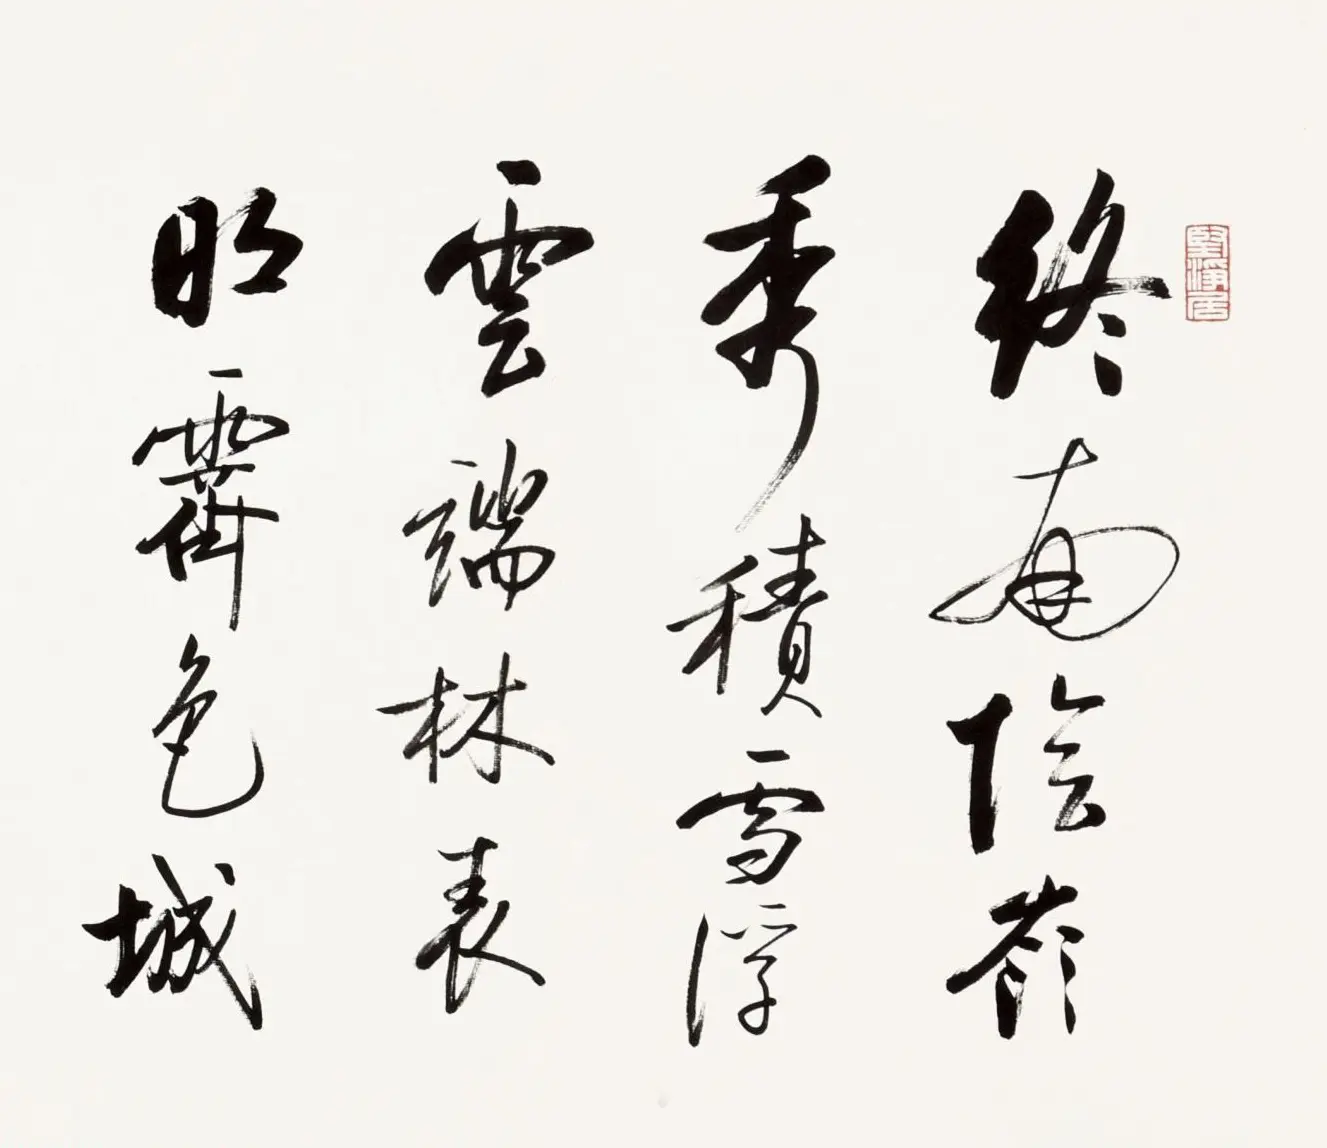 堅淨居
終南陰嶺
秀積雪浮
雲端林表
明霽色城